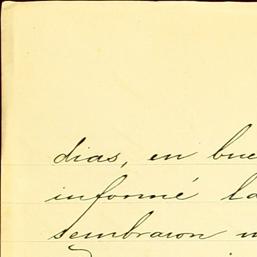 dias, en bue
informé la
sembraron